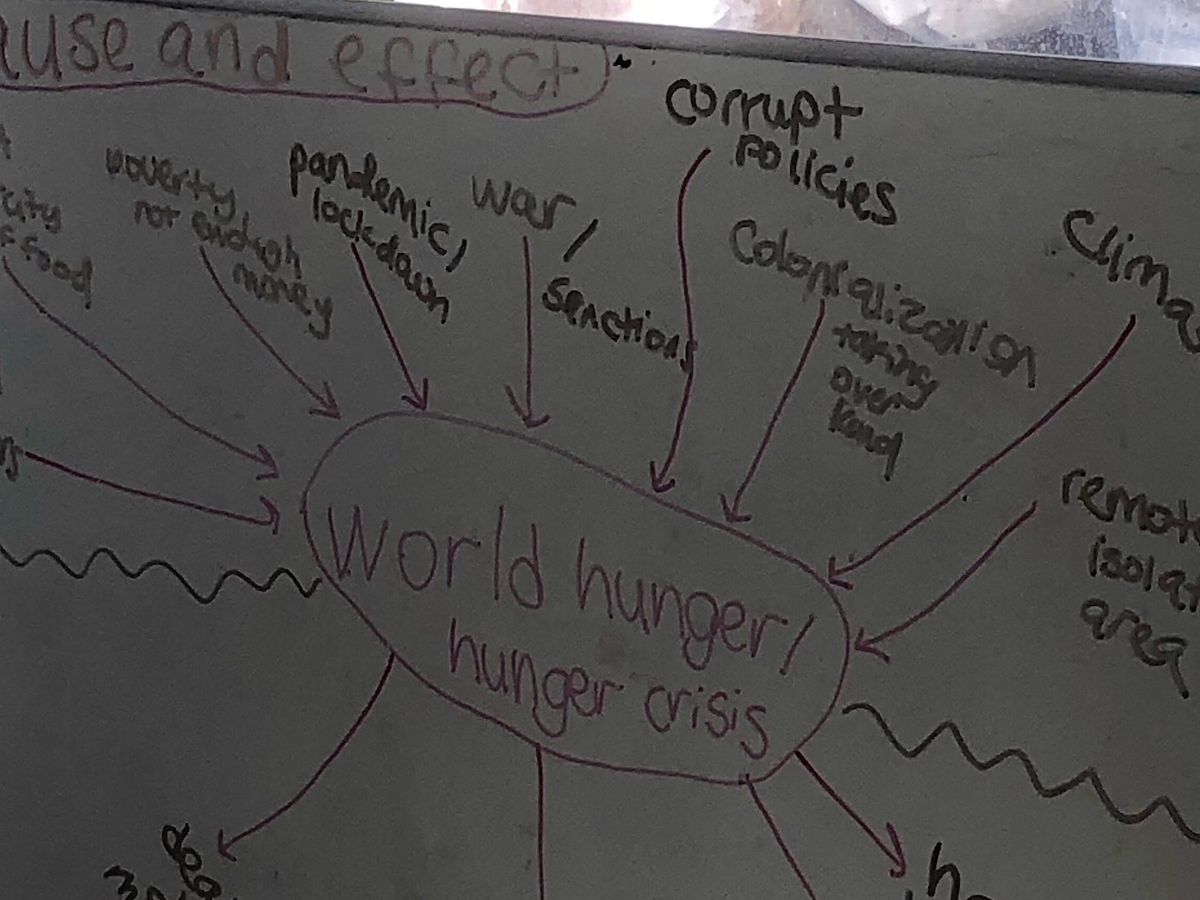 ause and effect
city
food
poverty,
not enough
money
pandemic/
lockdown
war/
senctions
corrupt
policies
Colonializanion
taking
over
land
Clima
remot
isolat
area
World hunger/
hunger crisis